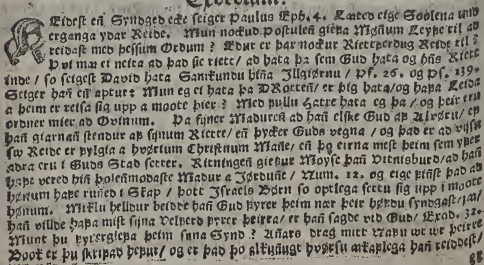 Reidest eñ Syndged ecke seiger Paulus Eph. 4. Lated eige Soolena und
erganga ydar Reide. Mun nockud Postulen giefa Møñum Leyfe til ad
reidast med þessum Ordum? Edur er þar nockur Riettferdug Reide til?
Pvi ma ei neita ad þad sie riett / ad hata þa sem Gud hata og hñs Riett
inde / so seigest David hata Samkundu hiña Illgiørnu / Ps. 26. og Ps. 139.
Seiger hañ eñ aptur: Mun eg ei hata þa DRotteñ / er þig hata / og hafa Leida
a þeim er reisa sig upp a moote þier? Med fullu Hatre hata eg þa / og þeir eru
ordner mier ad Ovinum. Þa syner Madureñ ad hañ elske Gud af Alvøru / ef
hañ giarnañ stendur af synum Riette / eñ þycker Guds vegna / og þad er ad vijsu
sw Reide er fylgia a hvørium Christnum Mañe / eñ þo eirna mest þeim sem yfer
adra eru i Guds Stad setter. Ritningeñ giefur Moyse þañ Vitnisburd / ad hañ
hafe vered hiñ þolenmodaste Madur a Jørduñe / Num. 12. og eige fiñst þad ad
hønum hafe ruñed i Skap / þott Israels Børn so optlega settu sig upp i moote
hønum. Miklu helldur beidde hañ Gud fyrer þeim nær þeir hørdu syndgast / ja /
hañ villde hafa mist syna Velferd fyrer þeirra / er hañ sagde vid Gud / Exod. 32.
Munt þu fyrergiefa þeim sana Synd? Añars drag mitt Nafn wt wr þeirre
Book er þu skrifad hefur / og er þad þo alkuñugt hvørsu akaflega hañ reiddest /